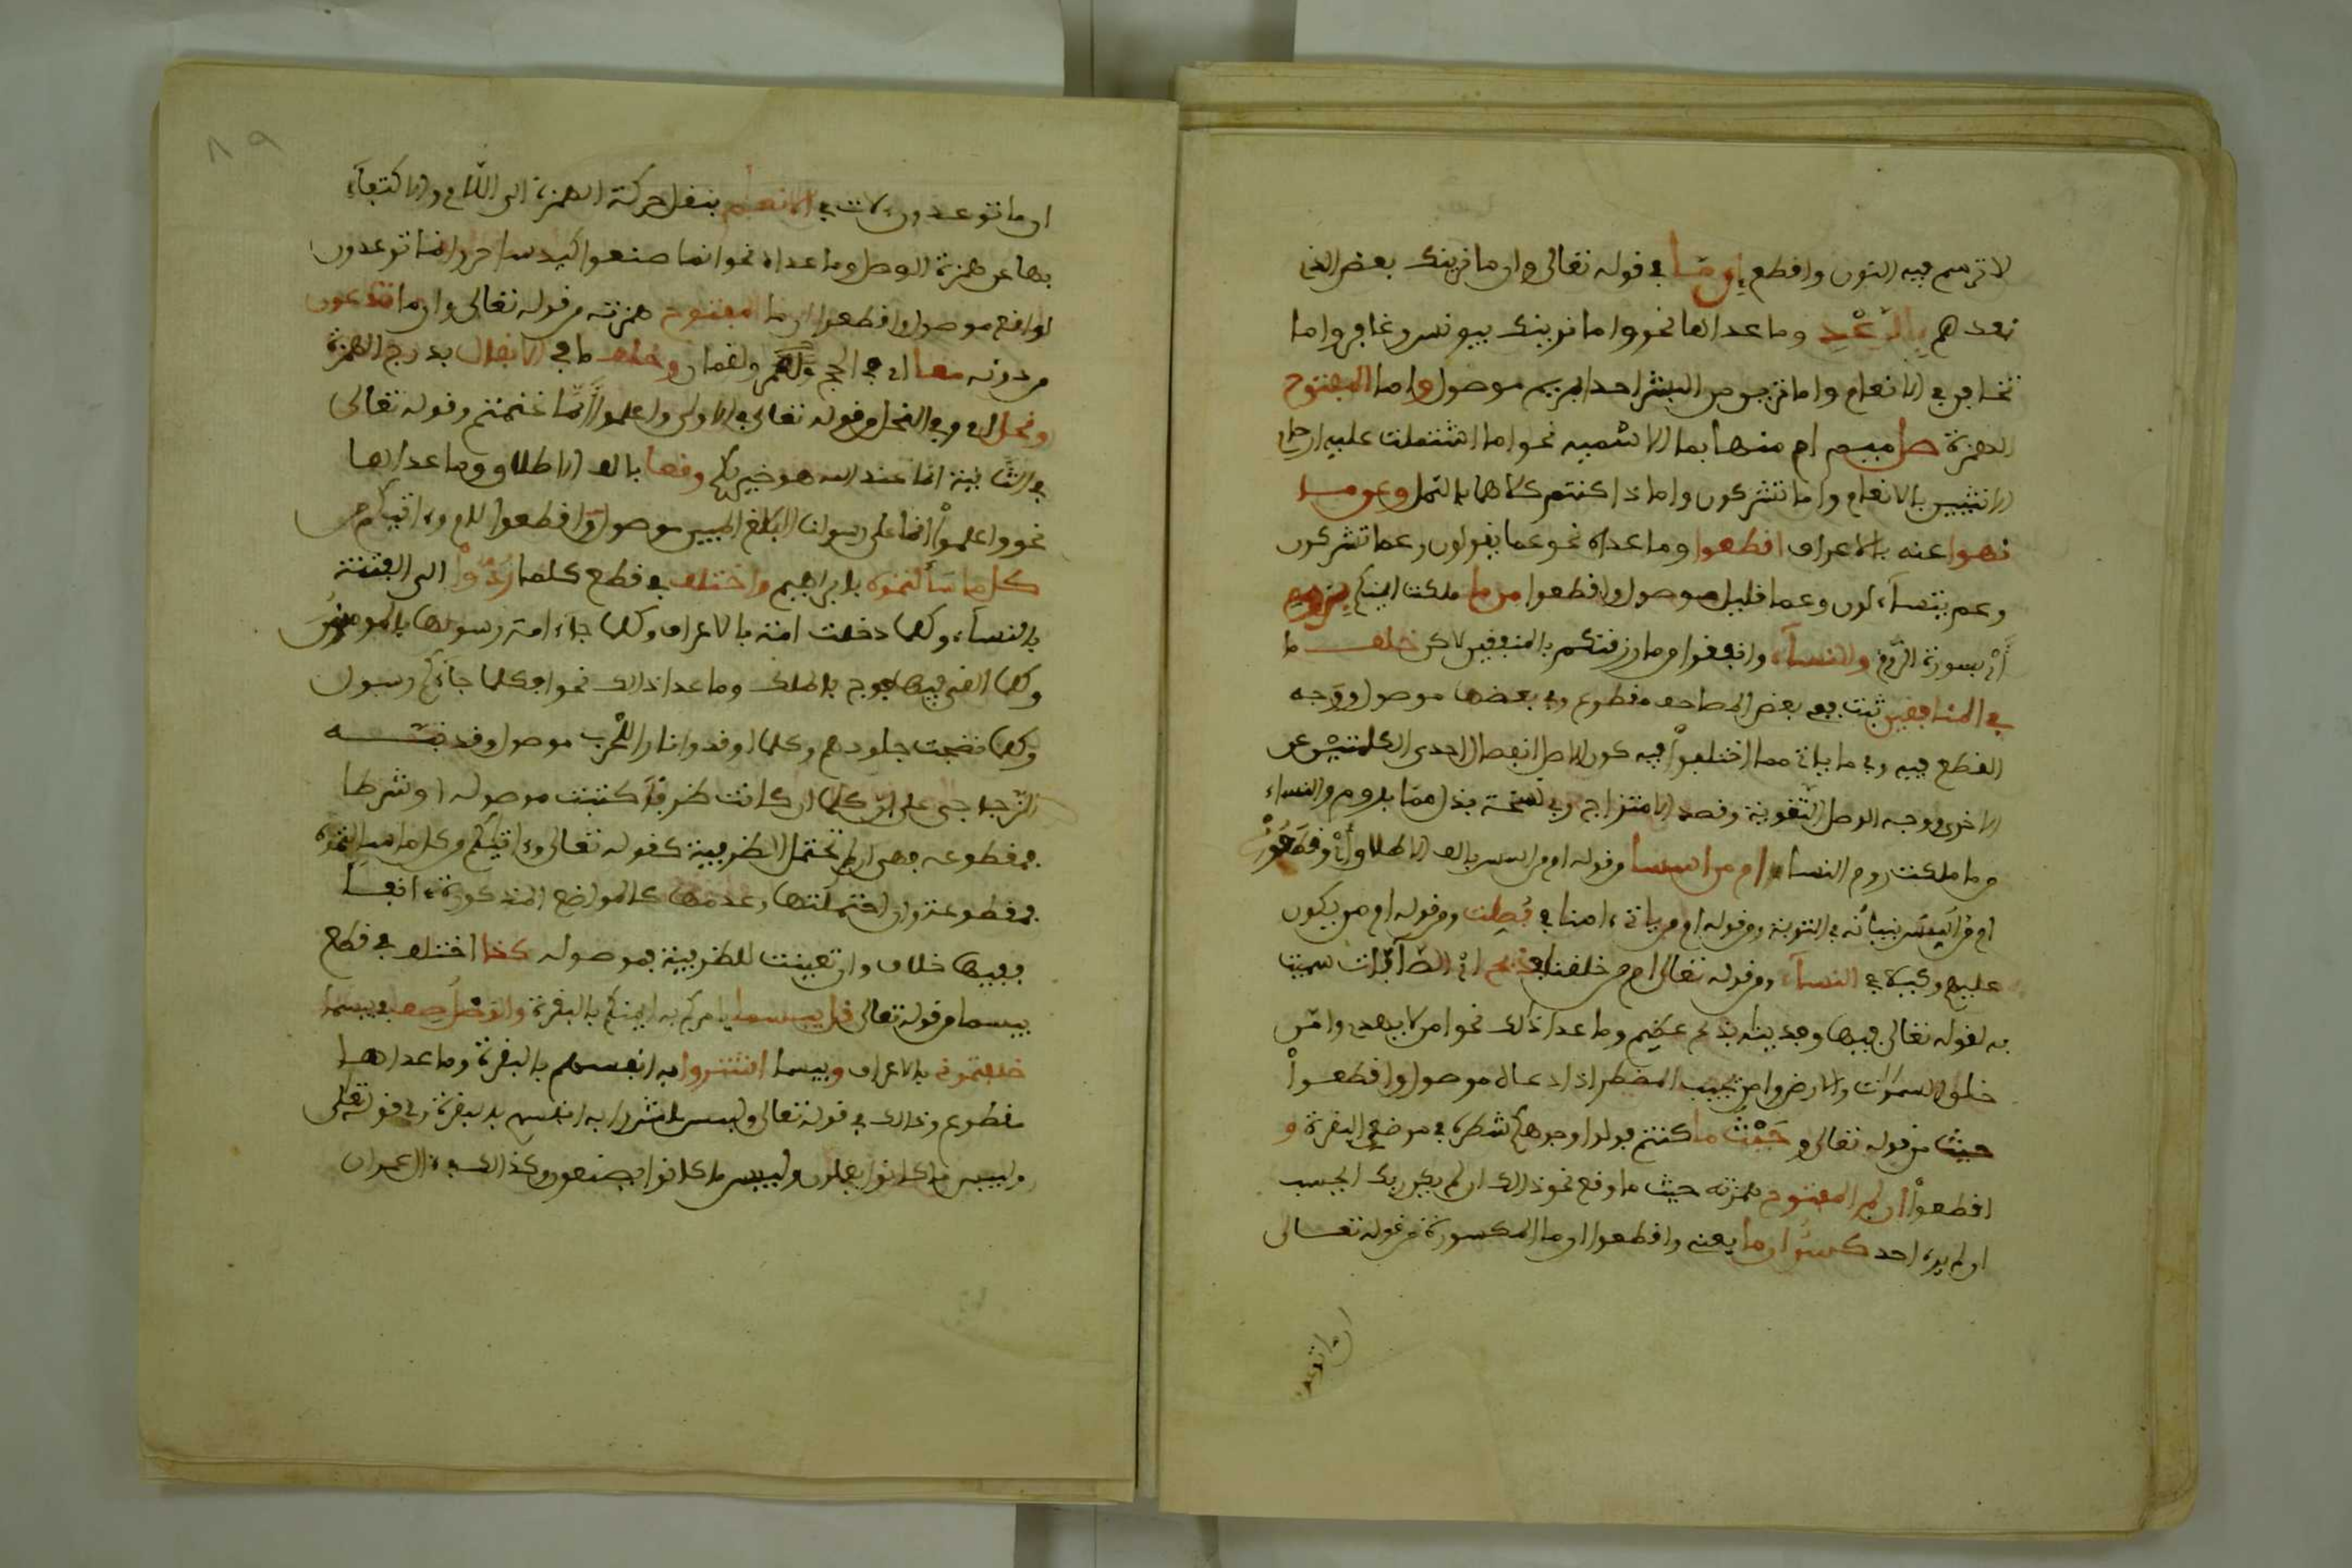 لا ترسم فيه النون واقطع إن ما في قوله تعالى وان ما نرينك بعض الذي
نعدهم بالرَّعْدِ وما عداها نحو واما نرينك بيونس وغافر واما
تخافن في الانعام واما ترين من البشر احدا بمريم موصول واما المفتوح
الهمزة صل ميم ام منها بما الاسمية نحو اما اشتملت عليه ارحام
الانثيين بالانعام واما تشركون واما ذا كنتم كلاهما بالنمل وعن ما
نهوا عنه بالاعراف اقطعوا وما عداه نحو عما يقولون وعما تشركون
وعم يتسآءلون وعما قليل موصول واقطعوا من ما ملكت ايمنكم بروم
أي بسورة الروم والنسآء وانفقوا من ما رزقنكم بالمنفقين لاكن خلف ما
في المنافقين ثبت ففي بعض المصاحف مقطوع وفي بعضها موصول ووجه
القطع فيه وفي ما ياتي مما اختلفوا فيه كون الاصل انفصال احدى الكلمتين عن
الاخرى ووجه الوصل التقوية وقصد الامتزاج وفي نسخة بذا مما بروم والنساء
من ما ملكت روم النسا وام من اسسا من قوله ام من اسس بالف الاطلاق أي وقطعوا
ام من اسس بنيانه في التوبة ومن قوله ام من ياتي ءامنا في فصلت ومن قوله ام من يكون
عليهم وكيلا في النسآء ومن قوله تعالى ام من خلقنا بذبح أي الصآفات سميت
به لقوله تعالى فيها وفدينه بذبح عظيم وما عدا ذلك نحو امن لا يهدي وامن
خلق السموات والارض وامن يجيب المضطر اذا دعاه موصول واقطعوا
حيث من قوله تعالى وحَيْثُ ما كنتم فولوا وجوهكم شطره في موضعي البقرة و
اقطعوا أن لم المفتوح همزته حيث ما وقع نحو ذالك ان لم يكن ربك ايحسب
ان لم يره احد كسرُ ان ما يعنى واقطعوا ان ما المكسورة من قوله تعالى
ان ما توعد
٨٩
ان ما توعدون لات في الانعام بنقل حركة الهمزة الى اللام والاكتفآء
بها عن همزة الوصل وما عداه نحو انما صنعوا كيد ساحر وانما توعدون
لواقع موصول واقطعوا ان ما المفتوح همزته من قوله تعالى وان ما تدعون
من دونه معا أي في الحج ولقمان وخلف ما في الانفال بدرج الهمزة
ونحل أي وفي النحل من قوله تعالى في الاولى واعلموا أنَّما غنمتم وقوله تعالى
في الثانية انما عند الله هو خير لكم وقعا بالف الاطلاق وما عداها
نحو واعلموا انما على رسولنا البلغ المبين موصول واقطعوا لام وءاتيكم من
كل ما سألتموه بابراهيم واختلف في قطع كلما رُدُّوا الى الفتنة
بالنسآء وكلما دخلت امة بالاعراف وكلما جآء امة رسولها بالمومنون
وكلما القي فيها فوج بالملك وما عدا ذالك نحو افكلما جآءكم رسول
وكلما نضجت جلودهم وكلما اوقدوا نارا للحرب موصول وقد نبه
الزجاجي على ان كلما ان كانت ظرفا كتبت موصولة او شرطا
فمقطوعة فهي ان لم تحتمل الظرفية كقوله تعالى وءاتيكم من كل ما سالتموه
فمقطوعة وان احتملتها وعدمها كالمواضع المذكورة ءانفا
ففيها خلاف وان تعينت للظرفية فموصولة كذا اختلف في قطع
بيسما من قوله تعالى قل بيسما يامركم به ايمنكم بالبقرة والوصل صف في بيسما
خلفتموني بالاعراف وبيسما اشتروا به انفسهم بالبقرة وما عداهما
مقطوع وذالك في قوله تعالى ولبيس ما شروا به انفسهم بالبقرة وفي قوله تعلى
ولبيس ما كانوا يعملون ولبيس ما كانوا يصنعون وكذالك في ءال عمران